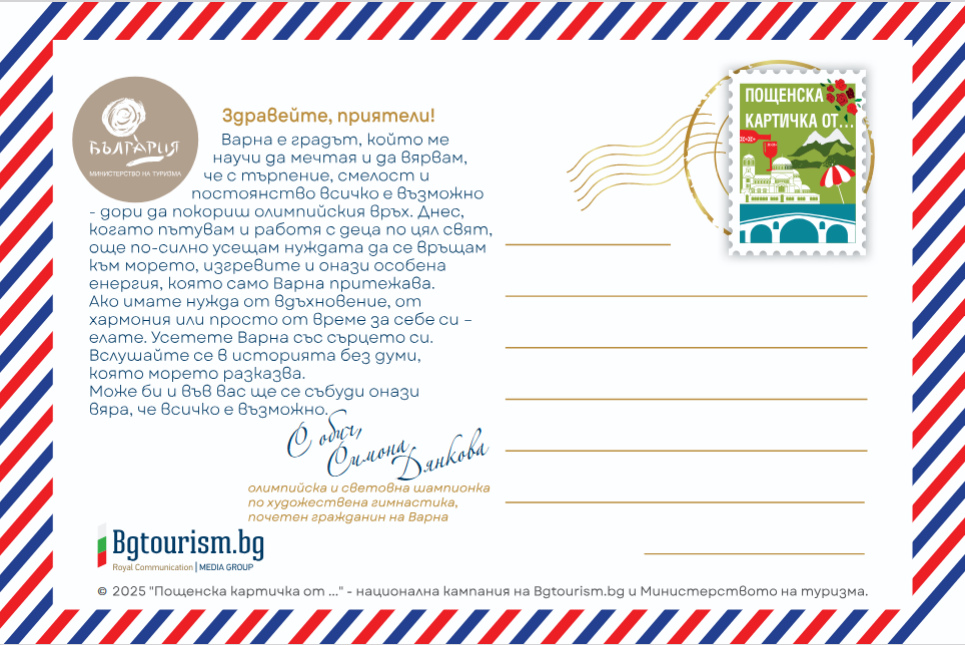 БЪЛГАРИЯ
МИНИСТЕРСТВО НА ТУРИЗМА
Здравейте, приятели!
Варна е градът, който ме
научи да мечтая и да вярвам,
че с търпение, смелост и
постоянство всичко е възможно
- дори да покориш олимпийския връх. Днес,
когато пътувам и работя с деца по цял свят,
още по-силно усещам нуждата да се връщам
към морето, изгревите и онази особена
енергия, която само Варна притежава.
Ако имате нужда от вдъхновение, от
хармония или просто от време за себе си –
елате. Усетете Варна със сърцето си.
Вслушайте се в историята без думи,
която морето разказва.
Може би и във вас ще се събуди онази
вяра, че всичко е възможно.
С обич,
Симона Дянкова
олимпийска и световна шампионка
по художествена гимнастика,
почетен гражданин на Варна
ПОЩЕНСКА
КАРТИЧКА ОТ...
Bgtourism.bg
Royal Communication | MEDIA GROUP
© 2025 "Пощенска картичка от ..." - национална кампания на Bgtourism.bg и Министерството на туризма.